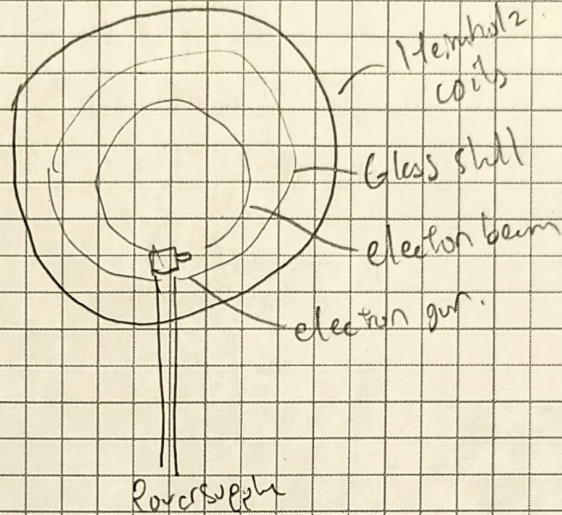 Hemholz
coils
Glass shell
electron beam
electron gun.
Powersupply